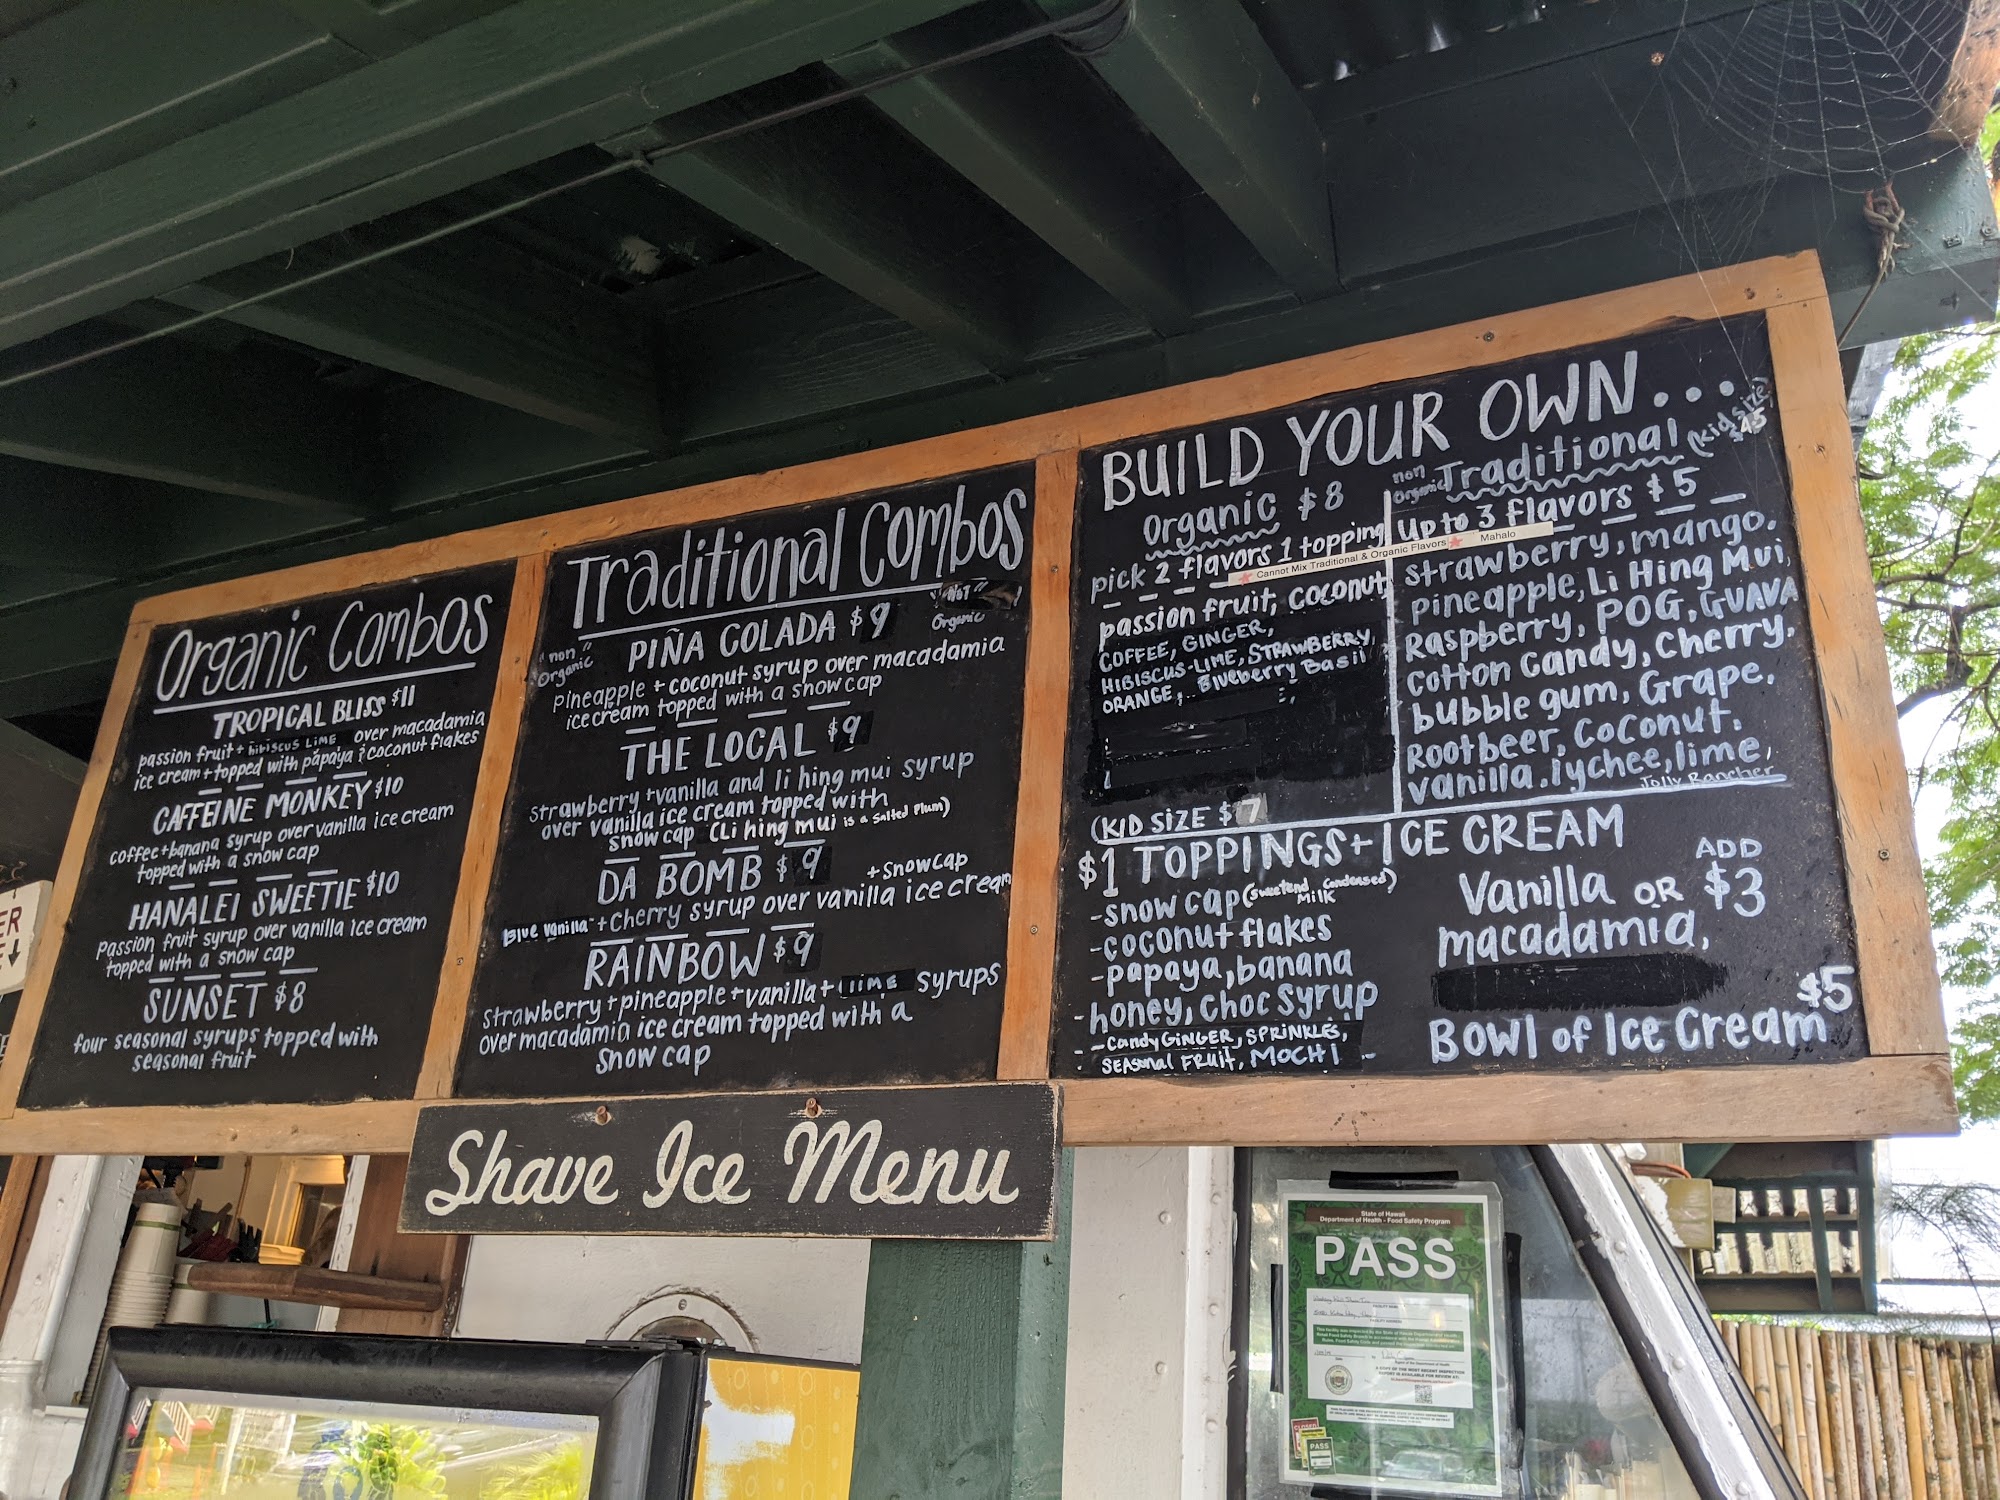 Organic Combos
TROPICAL BLISS $11
passion fruit + hibiscus Lime over macadamia
ice cream + topped with papaya + coconut flakes
CAFFEINE MONKEY $10
coffee + banana syrup over vanilla ice cream
topped with a snow cap
HANALEI SWEETIE $10
passion fruit syrup over vanilla ice cream
topped with a snow cap
SUNSET $8
four seasonal syrups topped with
seasonal fruit
Traditional Combos
"non Organic"
"NOT" Organic
PIÑA COLADA $9
pineapple + coconut syrup over macadamia
ice cream topped with a snow cap
THE LOCAL $9
strawberry + vanilla and li hing mui syrup
over vanilla ice cream topped with
snow cap (Li hing mui is a Salted Plum)
DA BOMB $9
+ Snowcap
Blue Vanilla + cherry syrup over vanilla ice cream
RAINBOW $9
strawberry + pineapple + vanilla + lime syrups
over macadamia ice cream topped with a
snow cap
BUILD YOUR OWN....
Organic $8
pick 2 flavors 1 topping
passion fruit, coconut
COFFEE, GINGER,
HIBISCUS-LIME, STRAWBERRY,
ORANGE, Blueberry Basil
(KID SIZE $7
non Organic Traditional (kid size)
Up to 3 flavors $5
Cannot Mix Traditional & Organic Flavors Mahalo
strawberry, mango,
pineapple, Li Hing Mui,
Raspberry, POG, GUAVA
cotton candy, cherry,
bubble gum, Grape,
Rootbeer, Coconut,
vanilla, lychee, lime,
Jolly Rancher
$1 TOPPINGS + ICE CREAM
- snow cap (sweetend condensed Milk)
- coconut flakes
- papaya, banana
- honey, choc syrup
- Candy GINGER, SPRINKLES,
SEASONAL FRUIT, MOCHI
Vanilla OR
macadamia,
ADD
$3
$5
Bowl of Ice Cream
Shave Ice Menu
State of Hawaii
Department of Health - Food Safety Program
PASS
PASS